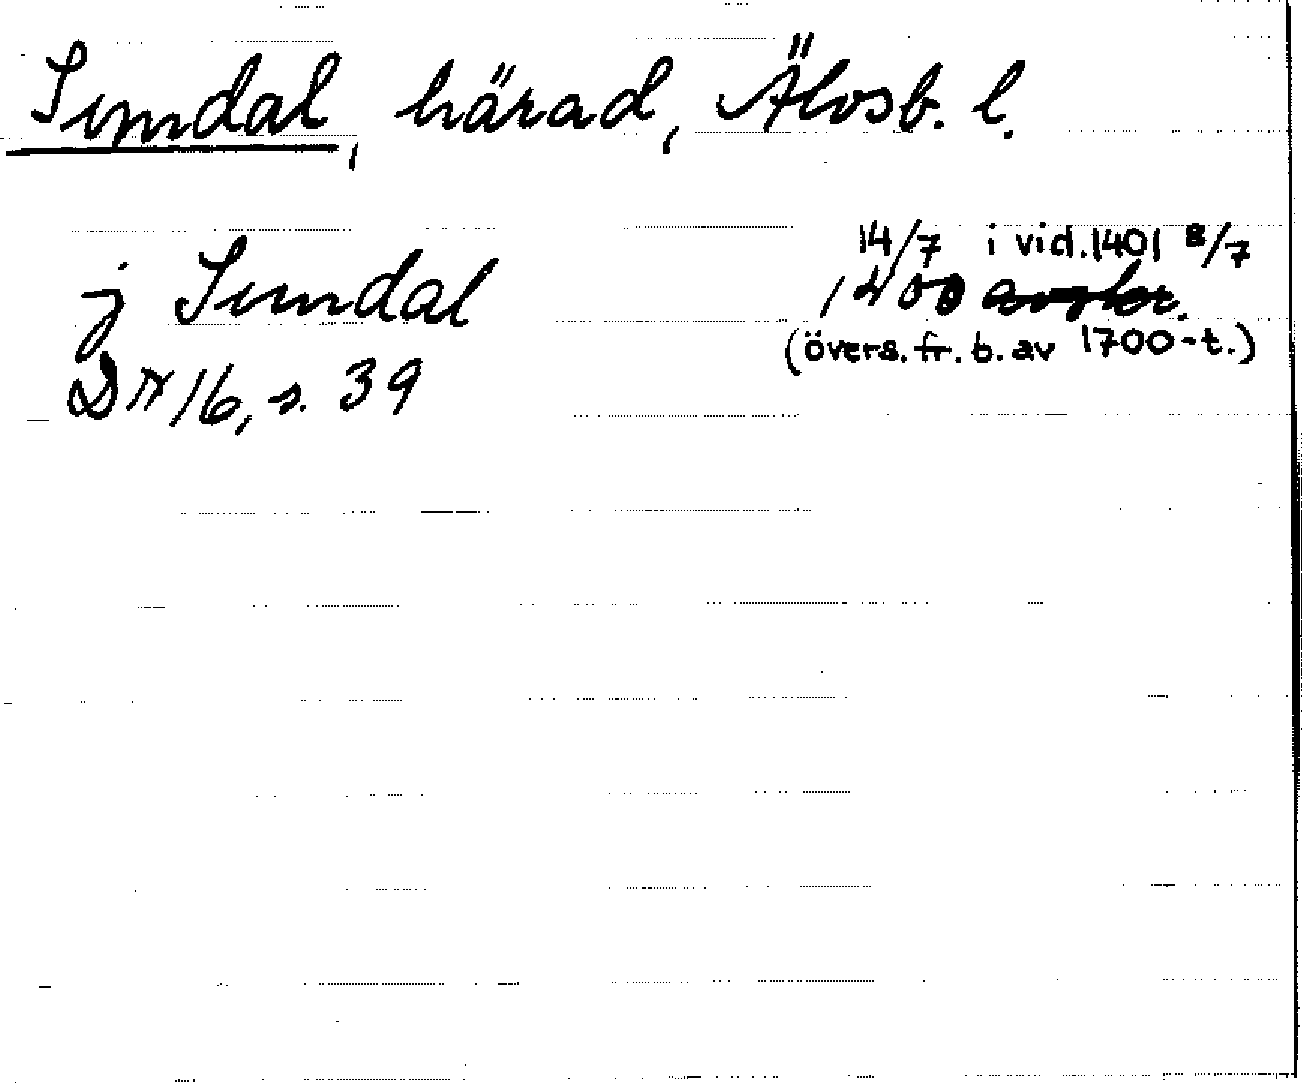 Sundal, härad, Älvsb. l.
14/7 i vid. 1401 8/7
j Sundal 1400
(övers. fr. b. av 1700-t.)
D IV 16, s. 39